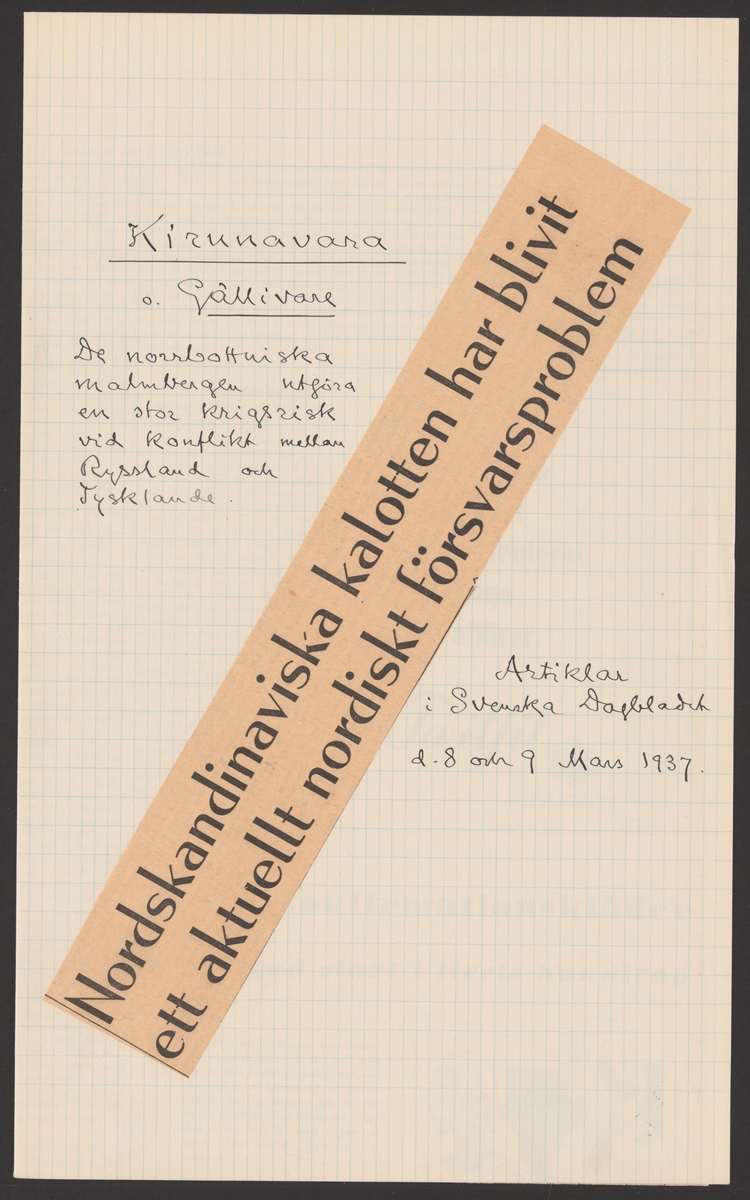 Kirunavara
o. Gällivare
De norrbottniska
malmbergen utgöra
en stor krigsrisk
vid konflikt mellan
Ryssland och
Tysklande.
Nordskandinaviska kalotten har blivit
ett aktuellt nordiskt försvarsproblem
Artiklar
i Svenska Dagbladet
d. 8 och 9 Mars 1937.